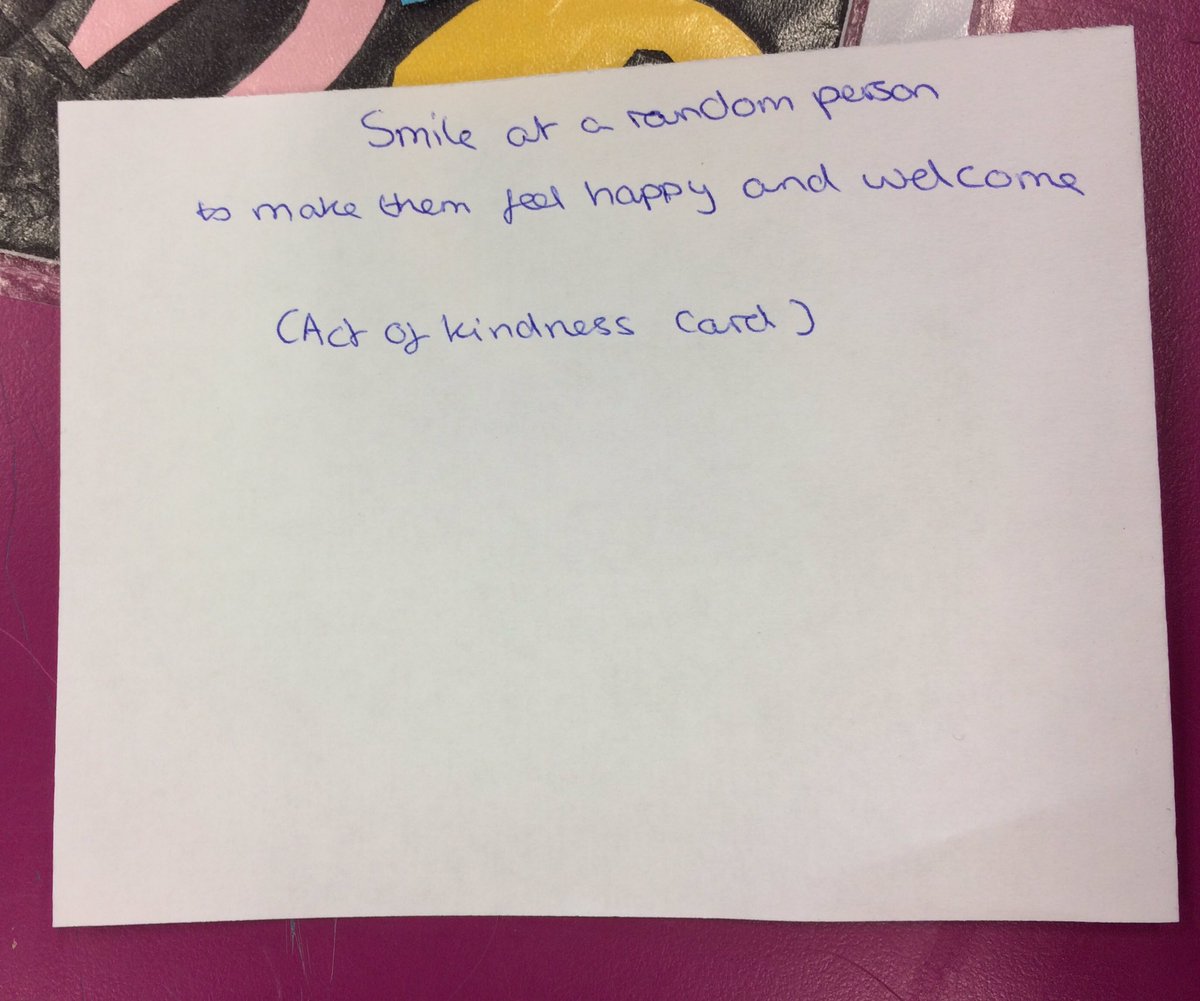 Smile at a random person
to make them feel happy and welcome
(Act of kindness card)